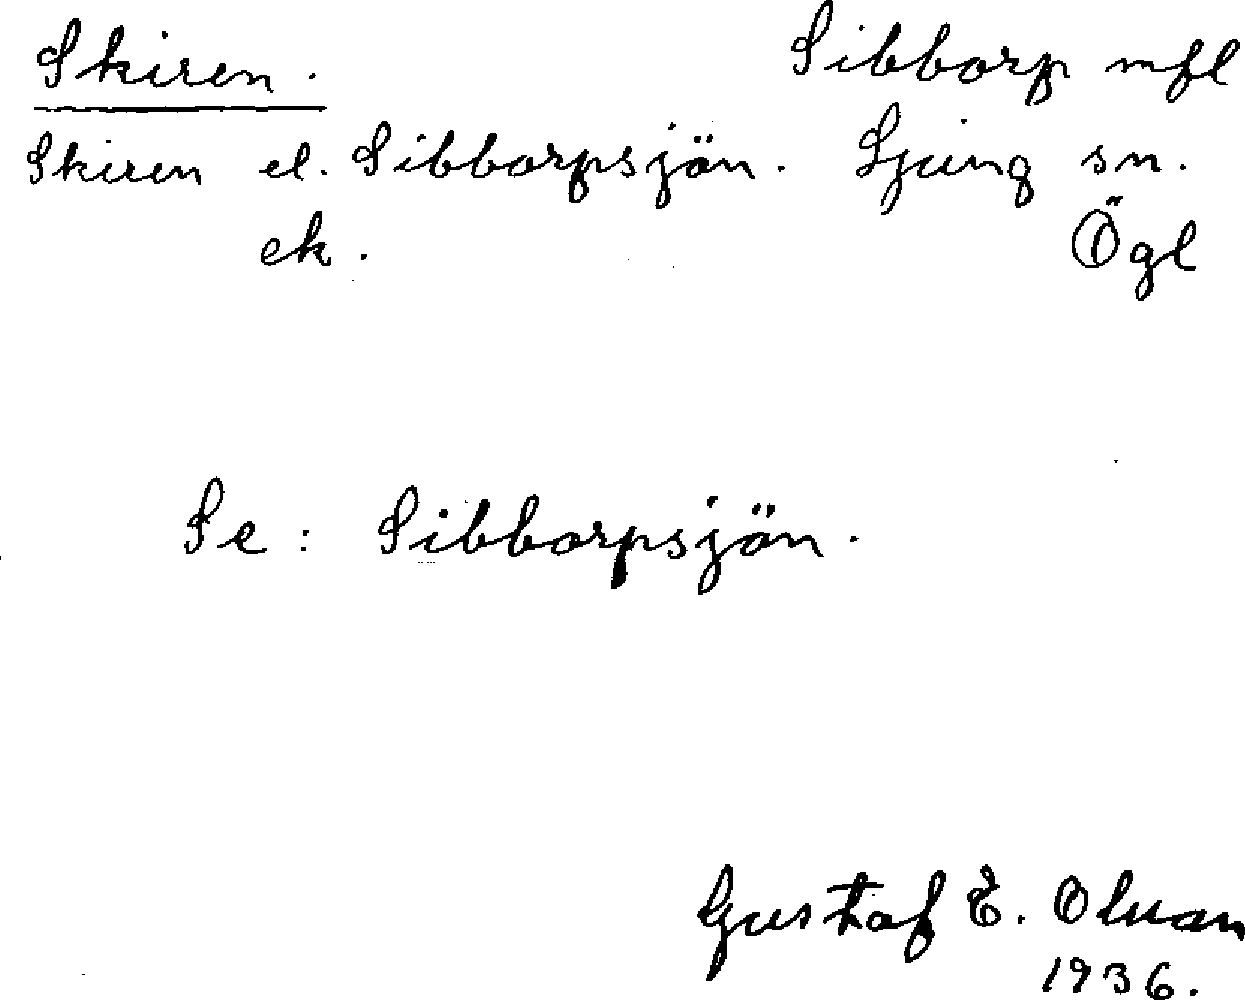 Skiren. Sibborp mfl
Skiren el. Sibborpsjön. Ljung sn.
ek. Ögl
Se: Sibborpsjön.
Gustaf E. Olvan
1936.